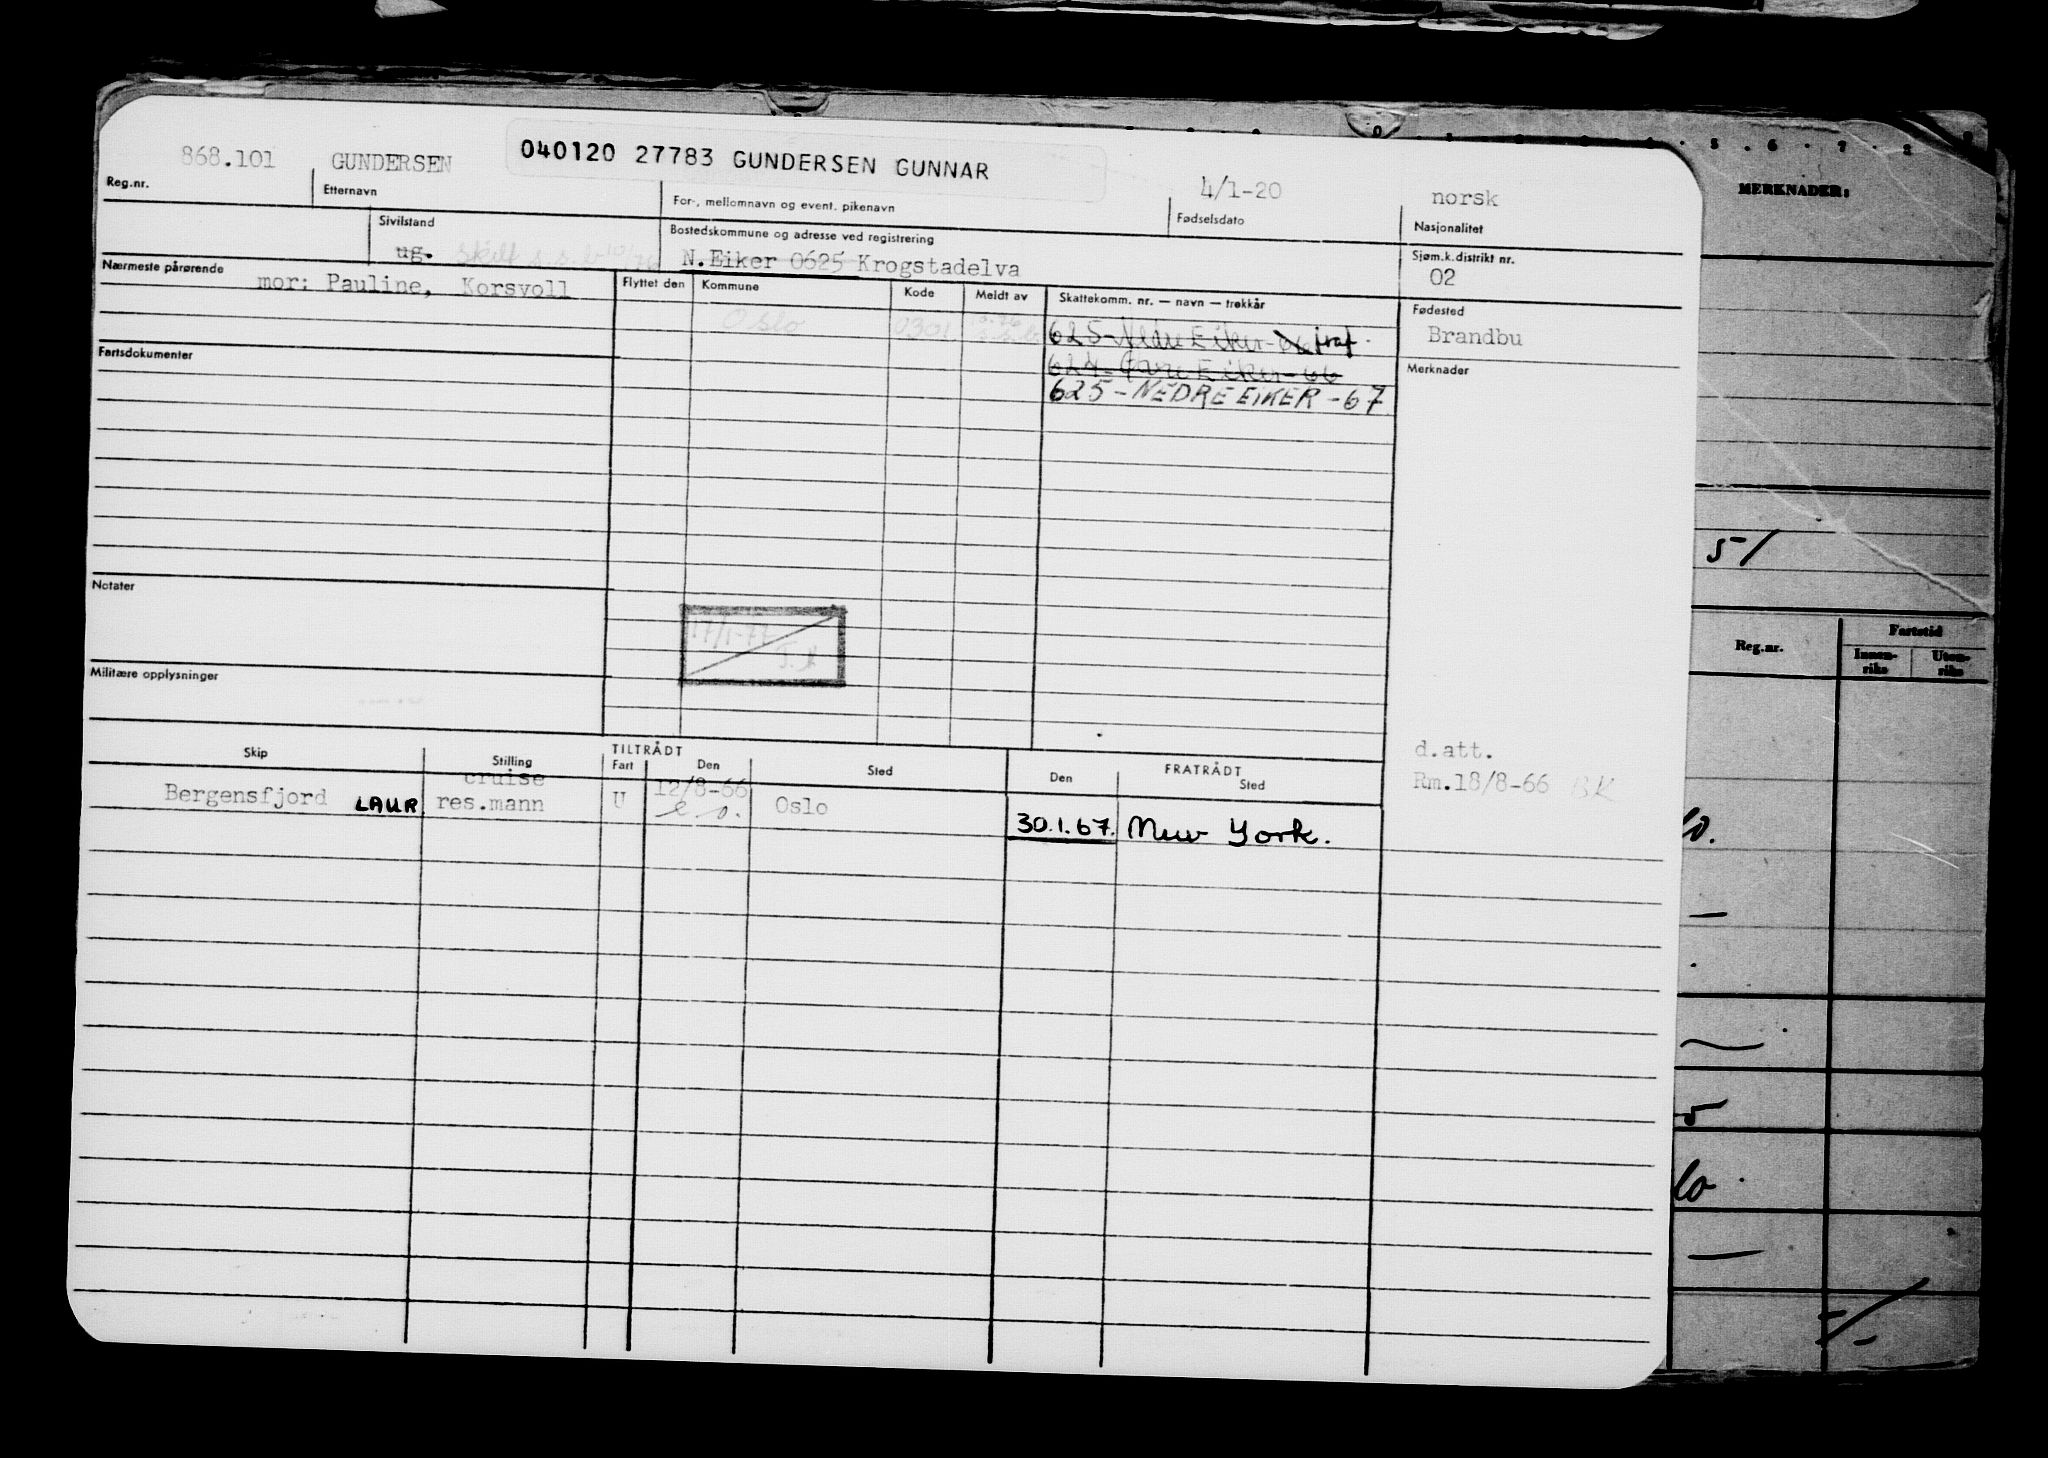 868.101 GUNDERSEN 040120 27783 GUNDERSEN GUNNAR 4/1-20 norsk
Reg.nr. Etternavn For-, mellomnavn og event. pikenavn Fødselsdato Nasjonalitet
Sivilstand Bostedskommune og adresse ved registrering Sjøm.k.distrikt nr.
ug. skilt N.Eiker 0625 Krogstadelva 02
Nærmeste pårørende mor: Pauline, Korsvoll
Flyttet den Kommune Kode Meldt av Skattekomm. nr. — navn — trekkår Fødested
Oslo 0301 625-Nedre Eiker-66 Brandbu
Fartsdokumenter 624-Øvre Eiker-66 Merknader
625-NEDRE EIKER-67
Notater
17/1-77
Militære opplysninger
Skip Stilling TILTRÅDT FRATRÅDT d.att.
Fart Den Sted Den Sted
Rm.18/8-66 BK
cruise 12/8-66
Bergensfjord LAUR res.mann U Oslo 30.1.67. New York.
MERKNADER:
51
Reg.nr. Fartstid
Innen-riks Uten-riks